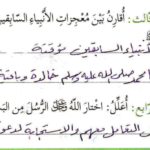 ثالث: أُقارِنُ بَيْنَ مُعْجِزاتِ الأَنْبِياءِ السّابِقين
الأنبياء السابقين مؤقتة
صلى الله عليه وسلم خالدة وباقية
رابع: أُعَلِّلُ: اخْتارَ اللهُ الرُّسُلَ مِنَ البَ
التعامل معهم والاستجابة لدعو